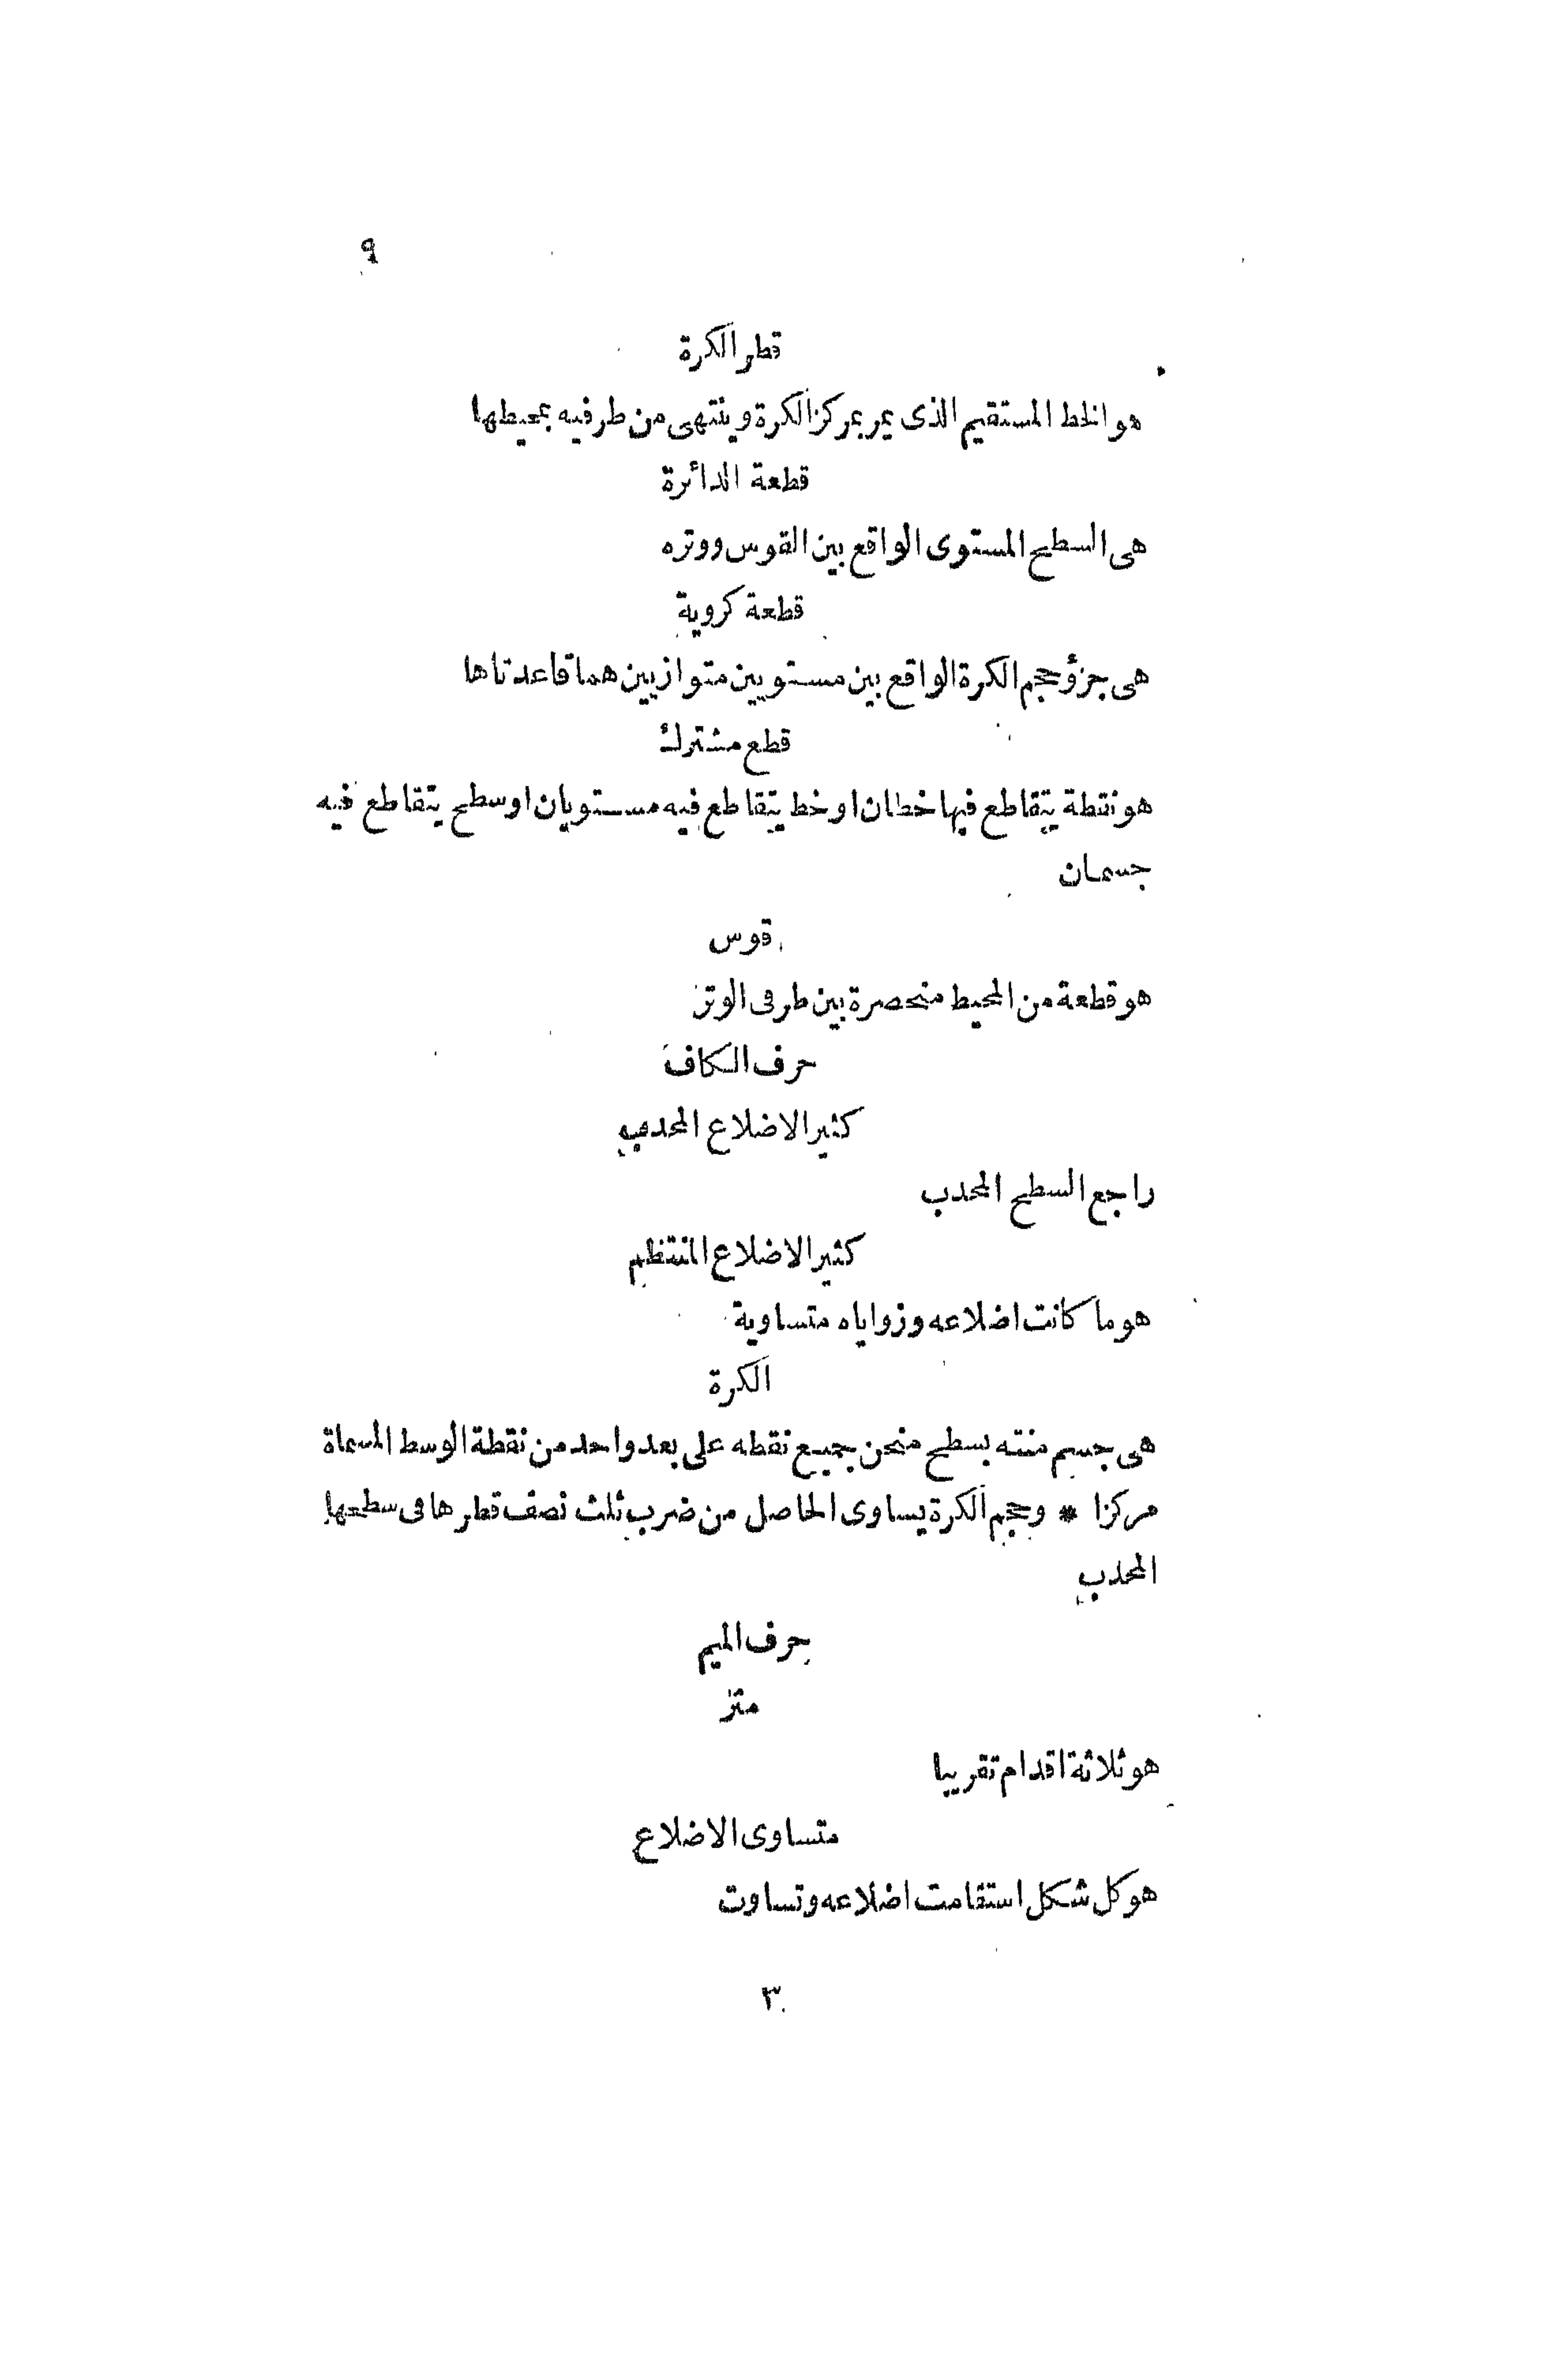 ٩
قطر الكرة
هو الخط المستقيم الذى يمر بمركز الكرة وينتهى من طرفيه بمحيطها
قطعة الدائرة
هى السطح المستوى الواقع بين القوس ووتره
قطعة كروية
هى جزؤ حجم الكرة الواقع بين مستويين متوازيين هما قاعدتاها
قطع مشترك
هو نقطة يتقاطع فيها خطان او خط يتقاطع فيه مستويان او سطح يتقاطع فيه
جسمان
قوس
هو قطعة من المحيط منحصرة بين طرفى الوتر
حرف الكاف
كثير الاضلاع المحدب
راجع السطح المحدب
كثير الاضلاع المنتظم
هو ما كانت اضلاعه وزواياه متساوية
الكرة
هى جسم منته بسطح منحن جميع نقطه على بعد واحد من نقطة الوسط المسماة
مركزا * وحجم الكرة يساوى الحاصل من ضرب ثلث نصف قطرها فى سطحها
المحدب
حرف الميم
متر
هو ثلاثة اقدام تقريبا
متساوى الاضلاع
هو كل شكل استقامت اضلاعه وتساوت
٣